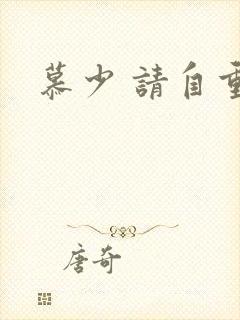 慕少請自重
唐奇